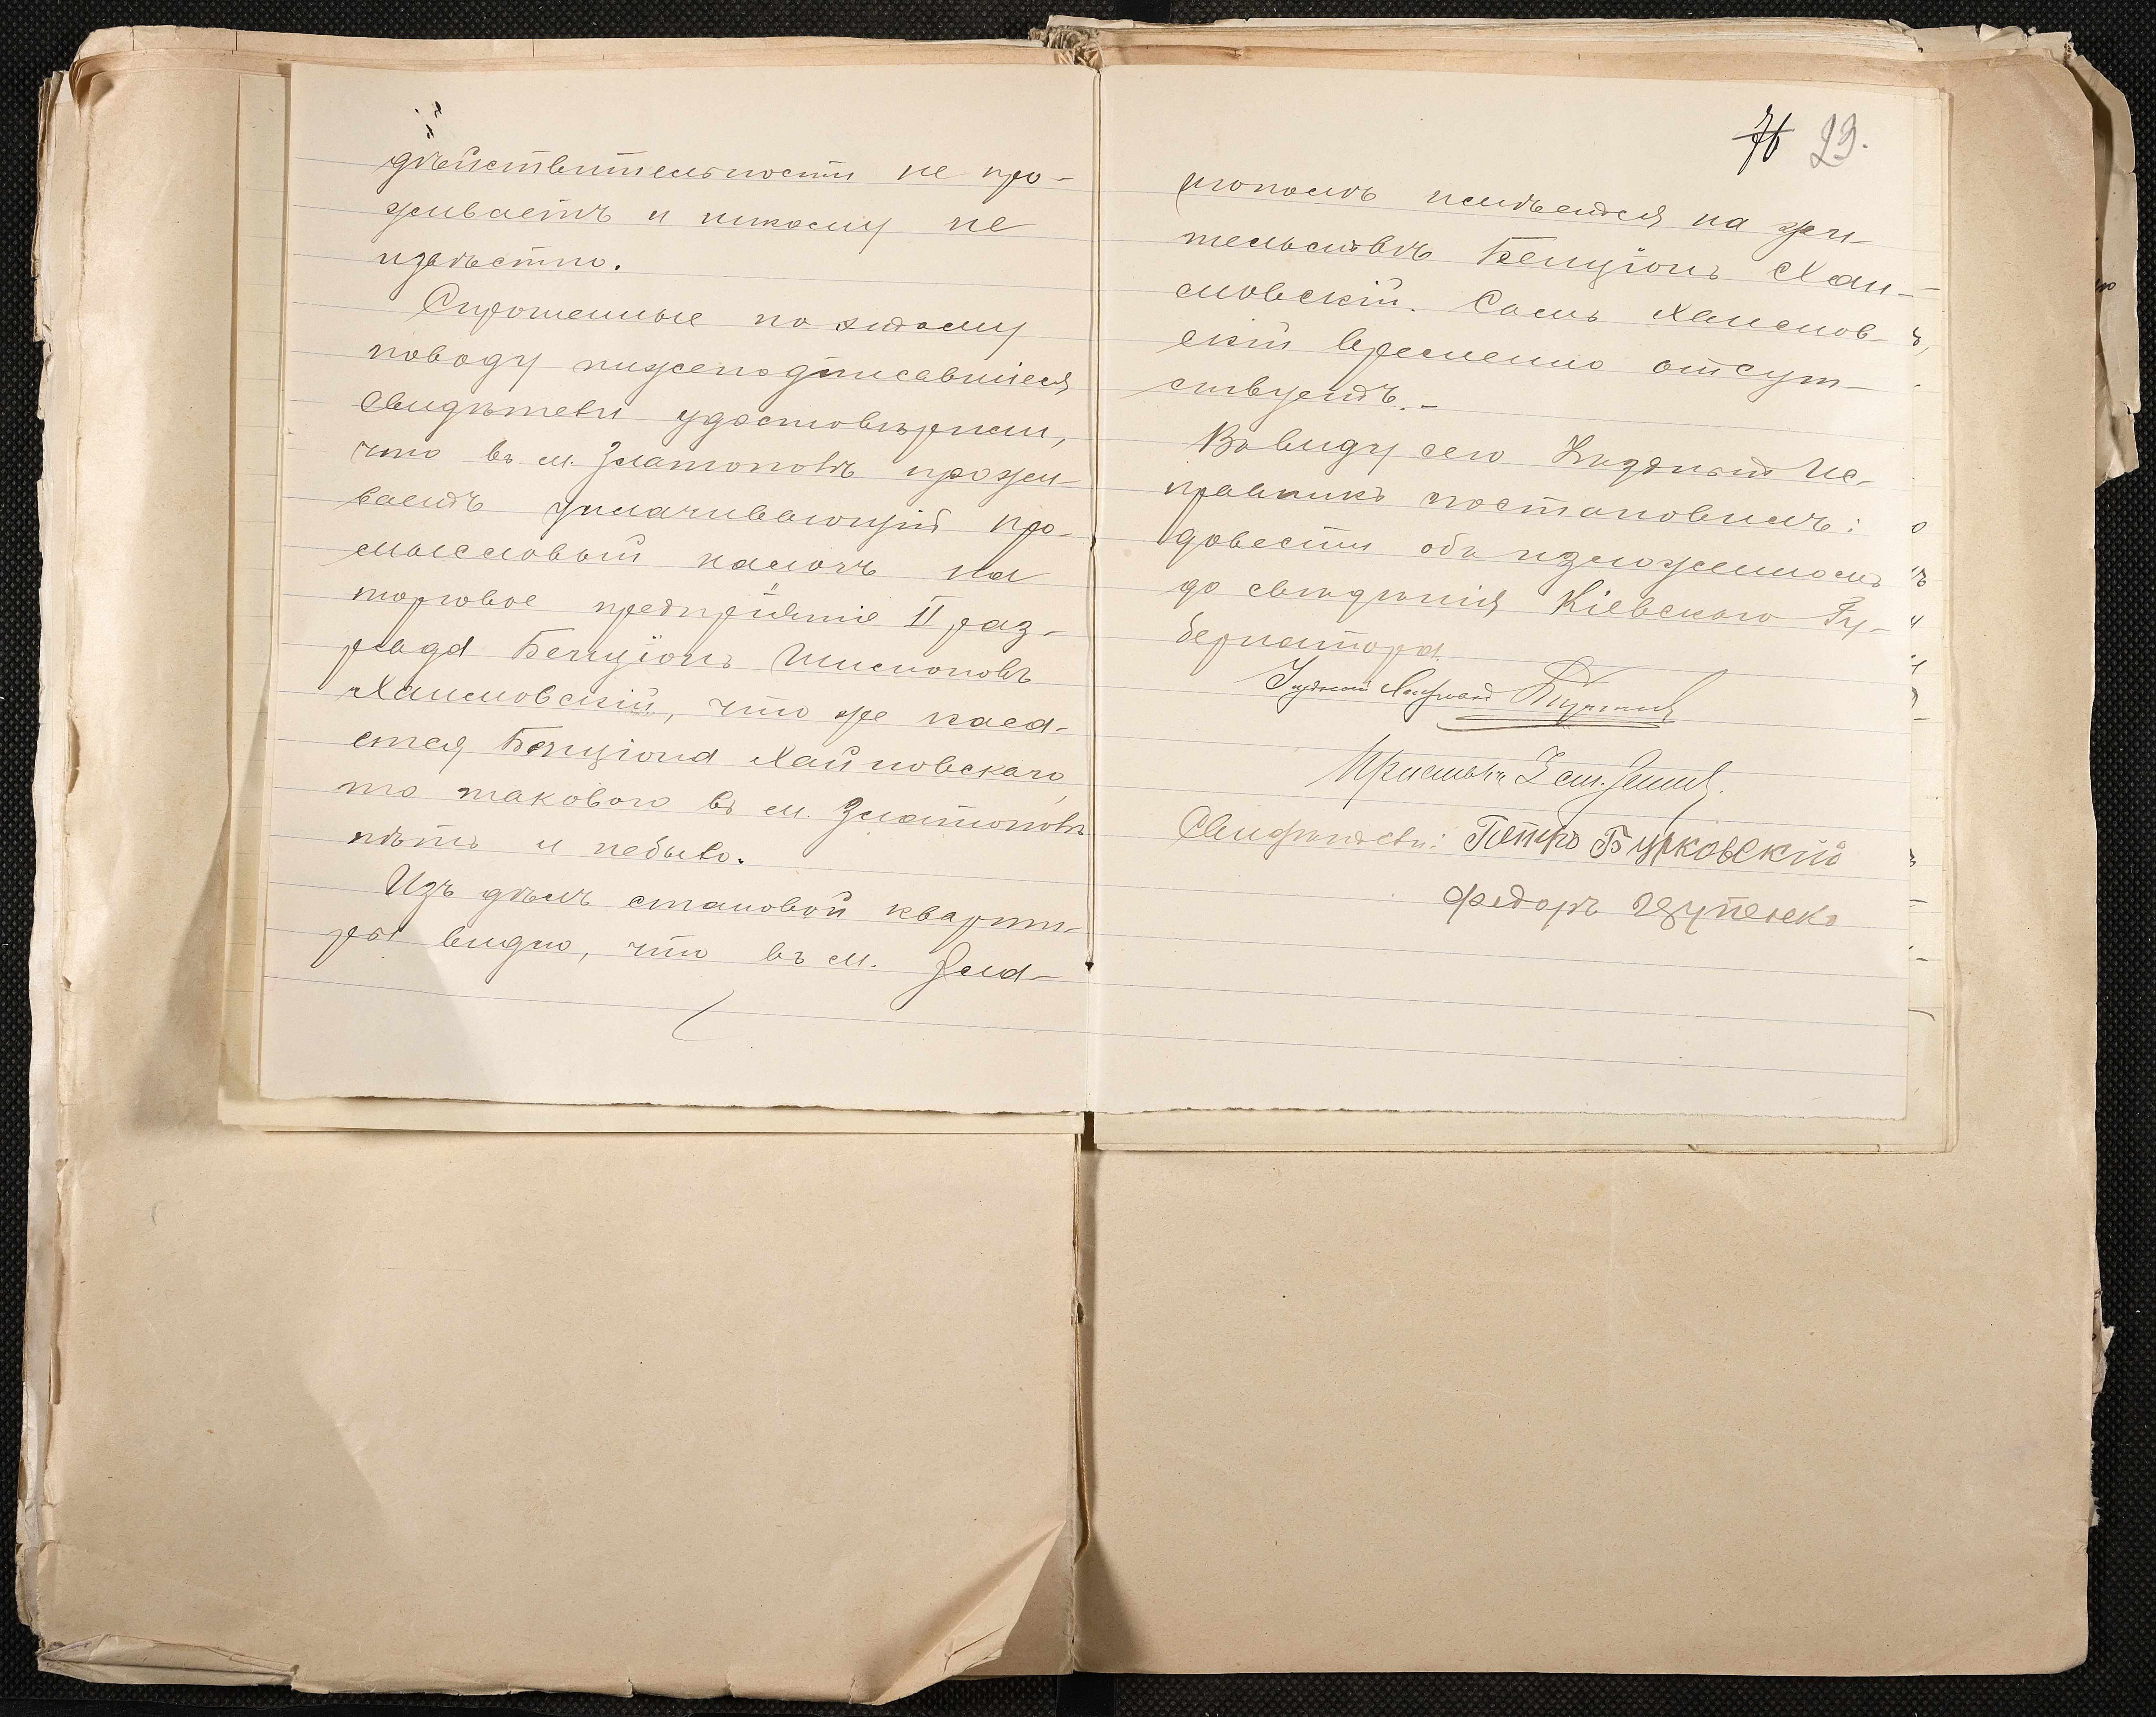 дѣйствительности не про-
живаетъ и никому не
извѣстно.
Спрошенные по этому
поводу нижеподписавшіеся
свидѣтели удостовѣрили,
что въ м. Златополѣ прожи-
ваетъ уплачивающій про-
мысловый налогъ на
торговое предпріятіе II раз-
ряда Бенціонъ Шимоновъ
Хаимовскій, что же каса-
ется Бенціона Хайновскаго,
то такового въ м. Златополѣ
нѣтъ и небыло.
Изъ дѣлъ становой кварти-
ры видно, что въ м. Зла-
76 29.
тополѣ имѣется на жи-
тельствѣ Бенціонъ Хаи-
мовскій. Самъ Хаимов-
скій временно отсут-
ствуетъ.-
Въ виду сего Уѣздный Ис-
правникъ постановилъ:
довести объ изложенномъ
до свѣдѣнія Кіевскаго Гу-
бернатора.
Уѣздный Исправникъ
Приставъ 3 ст.
Свидѣтели: Петръ Бурковскій
Федоръ